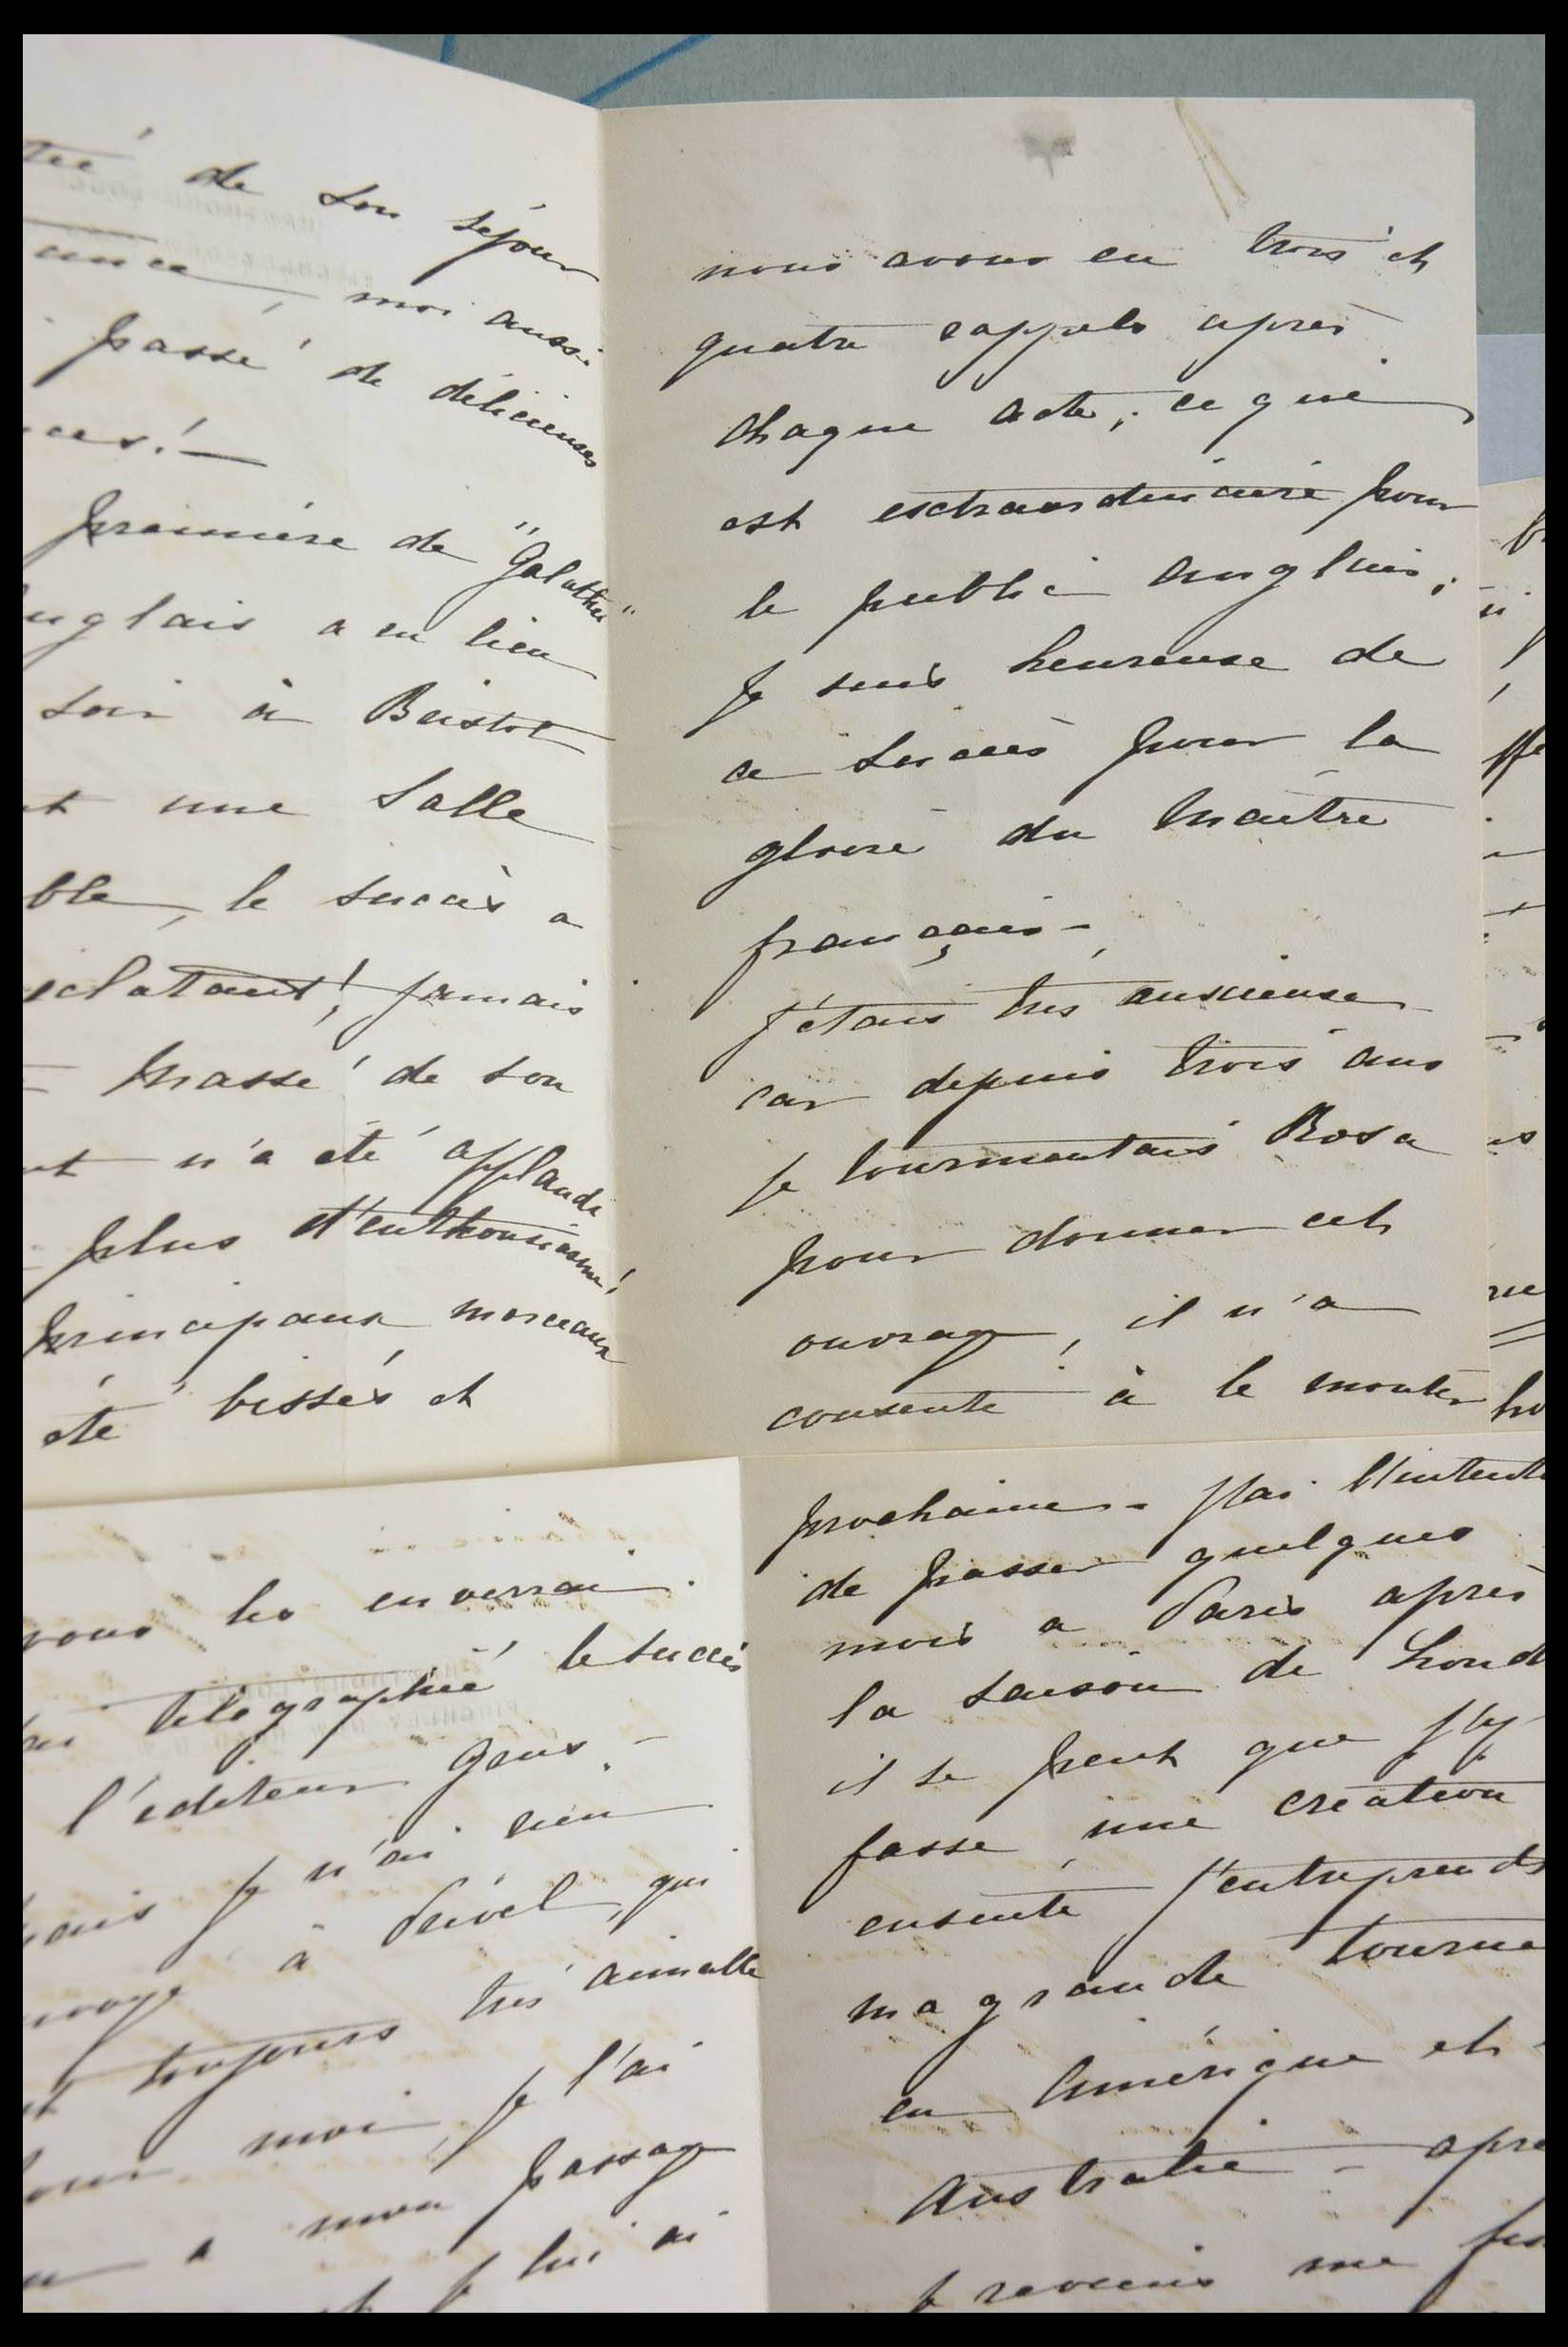 de son séjour
moi aussi
passé de délicieuses
première de "Galathée"
nglais a eu lieu
soir à Bristol
une salle
ble, le succès a
éclatant! jamais
Massé de son
n'a été applaudi
plus d'enthousiasme!
principaux morceaux
été bissés et
nous avons eu trois et
quatre rappels après
chaque acte, ce qui
est extraordinaire pour
le public anglais,
je suis heureuse de
ce succès pour la
gloire du Maître
français -
J'étais très anxieuse
car depuis trois ans
je tourmentais Rosa
pour donner cet
ouvrage, il n'a
consenti à le monter
vous les enverrai.
télégraphié le succès
l'éditeur Grus. -
mais je n'ai rien
à Deivel, qui
toujours très aimable
pour moi, je l'ai
à mon passage
et je lui ai
prochaine - J'ai l'intenti
de passer quelques
mois a Paris après
la saison de Lond
il se peut que j'y
fasse une création
ensuite j'entreprends
ma grande tourné
en Amérique et
Australie - apré
je reviens me